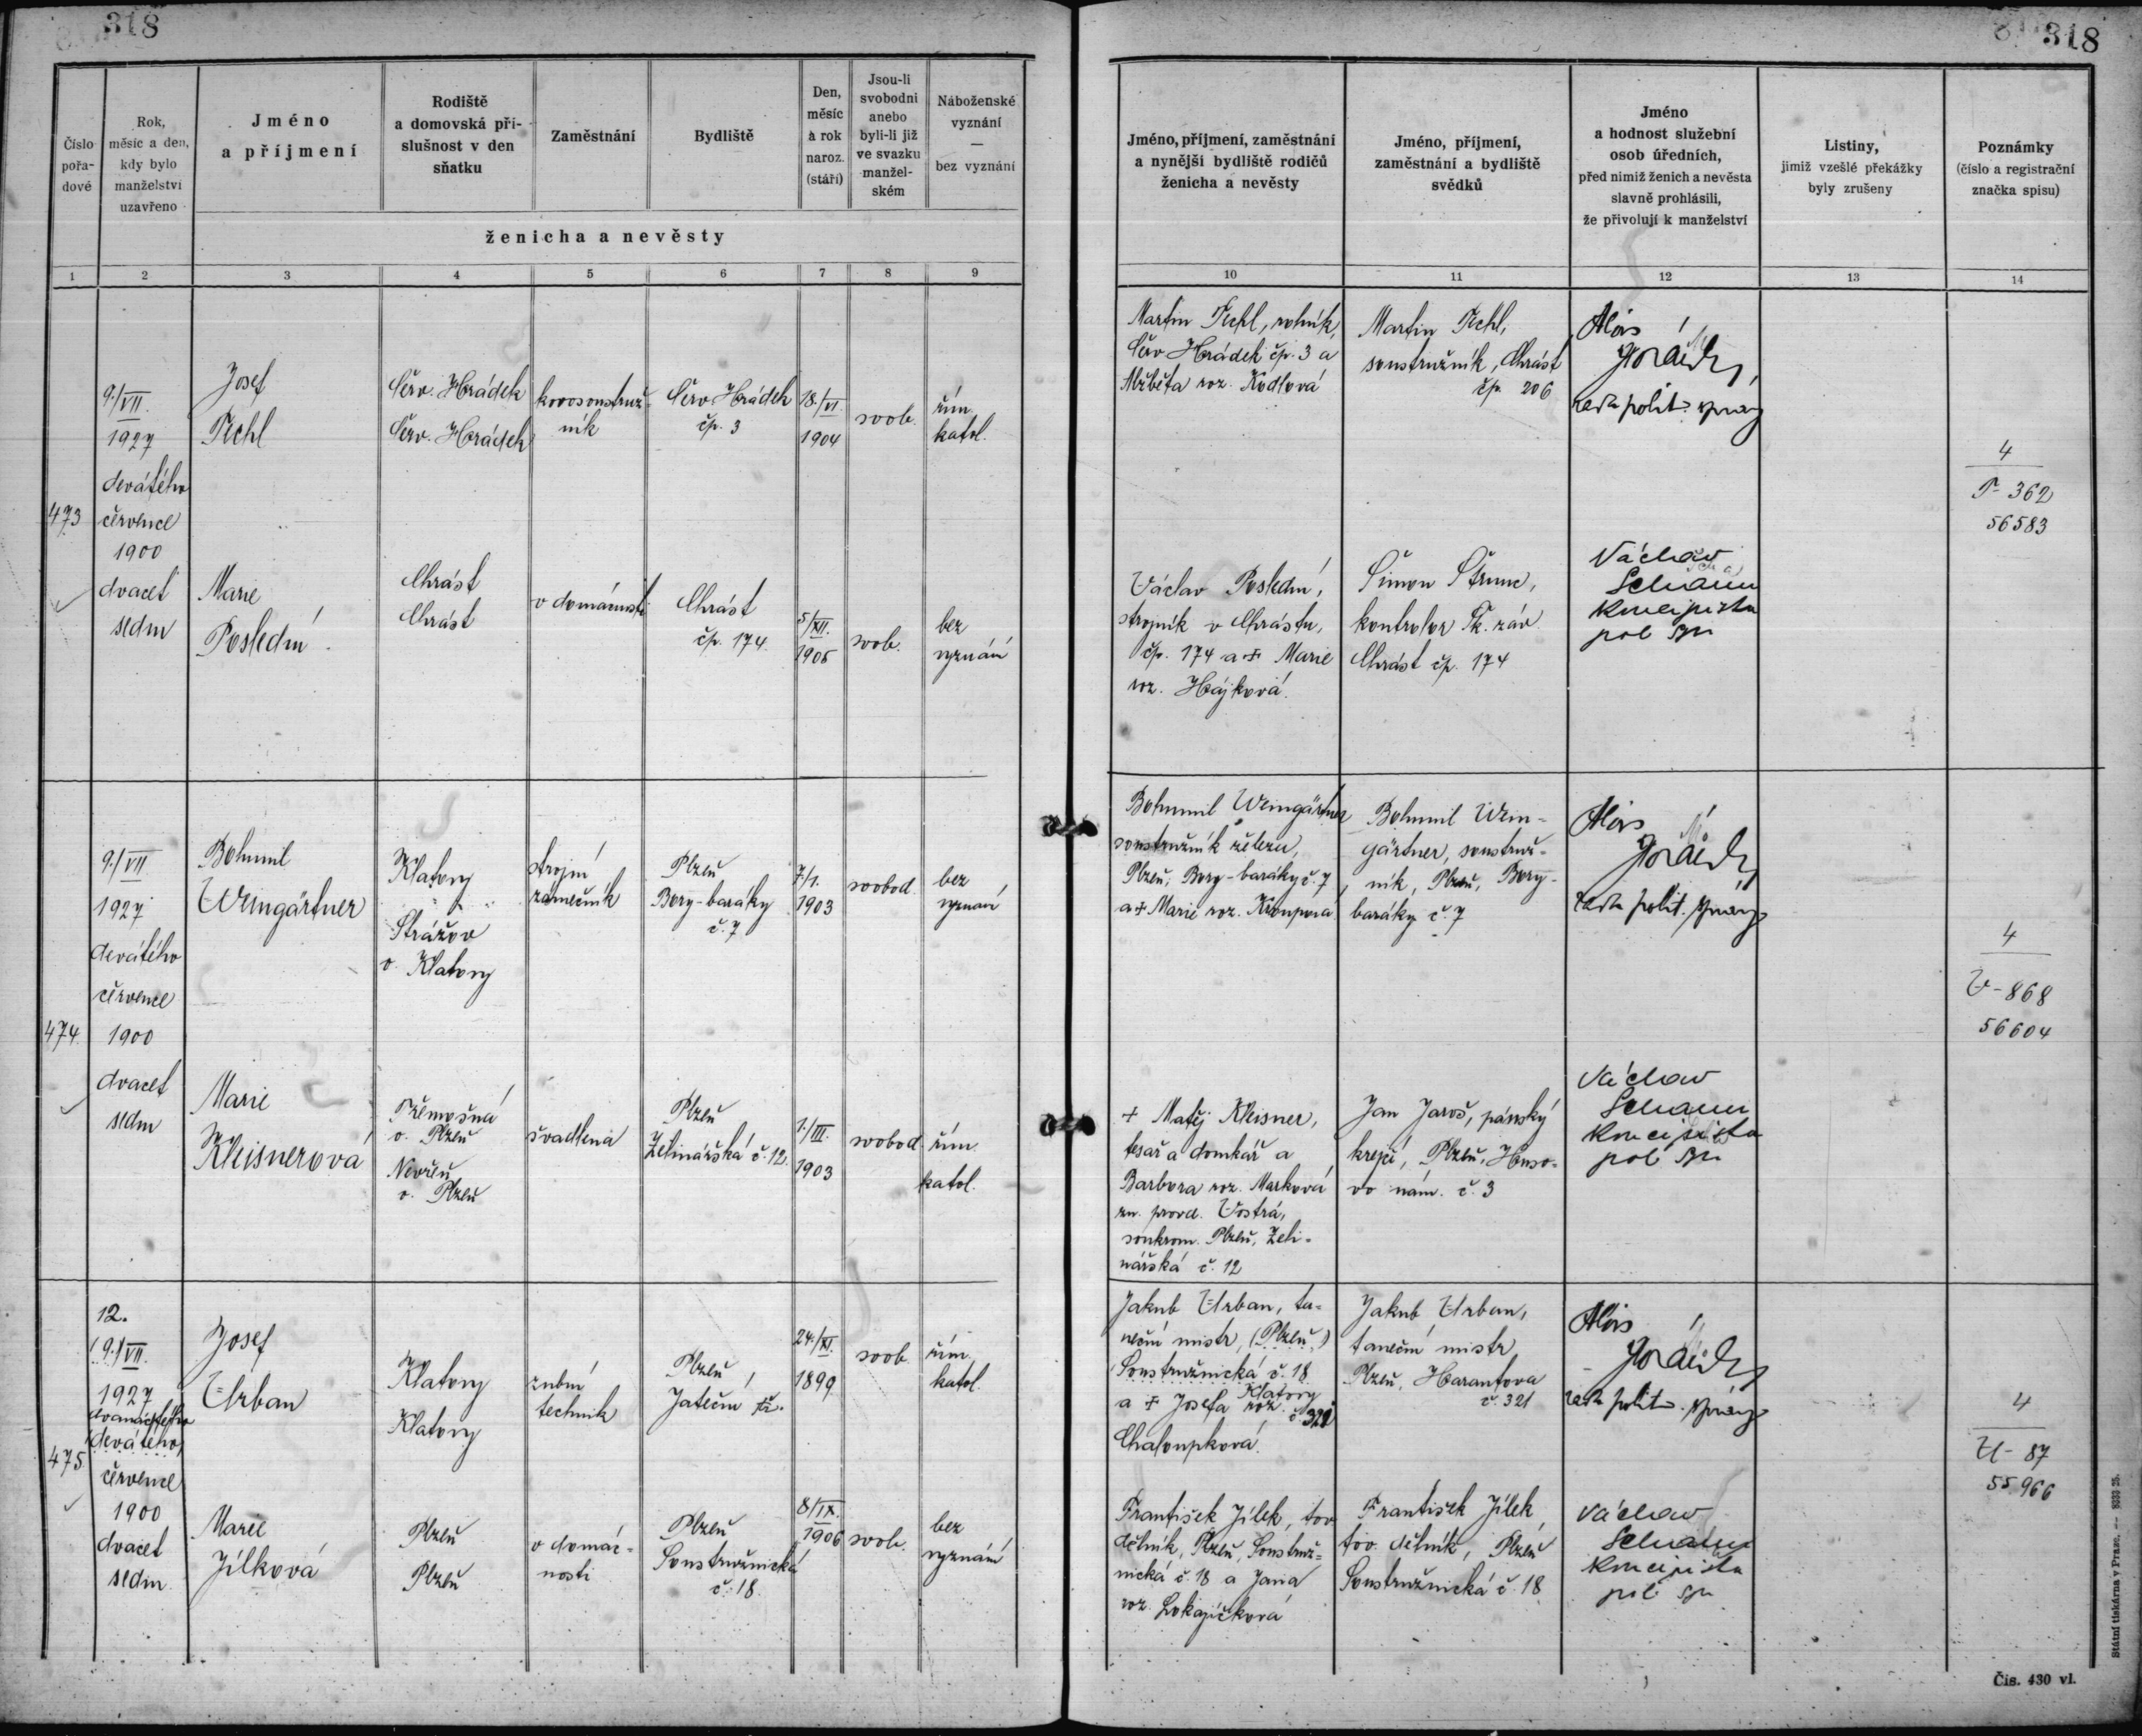 318
318
Číslo
pořa-
dové
Rok,
měsíc a den,
kdy bylo
manželství
uzavřeno
Jméno
a příjmení
Rodiště
a domovská pří-
slušnost v den
sňatku
Zaměstnání
Bydliště
Den,
měsíc
a rok
naroz.
(stáří)
Jsou-li
svobodni
anebo
byli-li již
ve svazku
manžel-
ském
Náboženské
vyznání
—
bez vyznání
ženicha a nevěsty
Jméno, příjmení, zaměstnání
a nynější bydliště rodičů
ženicha a nevěsty
Jméno, příjmení,
zaměstnání a bydliště
svědků
Jméno
a hodnost služební
osob úředních,
před nimiž ženich a nevěsta
slavně prohlásili,
že přivolují k manželství
Listiny,
jimiž vzešlé překážky
byly zrušeny
Poznámky
(číslo a registrační
značka spisu)
1 2 3 4 5 6 7 8 9 10 11 12 13 14
473
9./VII.
1927
devátého
července
1900
dvacet
sedm
Josef
Červ. Hrádek
Červ. Hrádek
kovosoustruž-
ník
Červ. Hrádek
čp. 3
18./VI.
1904
svob.
řím.
katol.
Martin
rolník,
Červ. Hrádek čp. 3 a
Alžběta roz. Kodlová
Martin
soustružník, Chrást
čp. 206
Alois
rada polit. správy
4
P-362
56583
Marie
Poslední
Chrást
Chrást
v domácnosti
Chrást
čp. 174.
5/XII.
1905
svob.
bez
vyznání
Václav Poslední,
strojník v Chrástu,
čp. 174 a + Marie
roz. Hájková.
Šimon
kontrolor Šk. záv.
Chrást čp. 174
Václav
koncipista
pol. spr.
474.
9./VII
1927
devátého
července
1900
dvacet
sedm
Bohumil
Weingärtner
Klatovy
Strážov
o. Klatovy
strojní
zámečník
Plzeň
Bory-baráky
č. 7
7/1.
1903
svobod.
bez
vyznání
Bohumil Weingärtner
soustružník železa,
Plzeň, Bory-baráky č. 7
a + Marie roz. Kroupová
Bohumil Wein-
gärtner, soustruž-
ník, Plzeň, Bory-
baráky č. 7
Alois
rada polit. správy
4
868
56604
Marie
Kleisnerová
Třemošná
o. Plzeň
Nevřeň
o. Plzeň
švadlena
Plzeň
Zelinářská č. 12.
1./III.
1903
svobod.
řím.
katol.
+ Matěj Kleisner,
tesař a domkář a
Barbora roz. Marková
zn. provd. Vostrá,
soukrom. Plzeň, Zeli-
nářská č. 12
Jan Jaroš, pánský
krejčí, Plzeň, Huso-
vo nám. č. 3
Václav
koncipista
pol. spr.
475
12.
(9./VII.
1927
dvanáctého
(devátého)
července
1900
dvacet
sedm
Josef
Urban
Klatovy
Klatovy
zubní
technik
Plzeň,
Jateční tř.
24./XI.
1899
svob.
řím.
katol.
Jakub Urban, ta-
neční mistr, (Plzeň,)
Soustružnická č. 18
Klatovy
č. 321
a + Josefa roz.
Chaloupková.
Jakub Urban,
taneční mistr,
Plzeň, Harantova
č. 321
Alois
rada polit. správy
4
U-87
55966
Marie
Jílková
Plzeň
Plzeň
v domác-
nosti
Plzeň
Soustružnická
č. 18.
8/IX.
1906
svob.
bez
vyznání
František Jílek, tov.
dělník, Plzeň, Soustruž-
nická č. 18 a Jana
roz. Lokajíčková
František Jílek,
tov. dělník, Plzeň
Soustružnická č. 18
Václav
koncipista
pol. spr.
Státní tiskárna v Praze.
Čís. 430 vl.